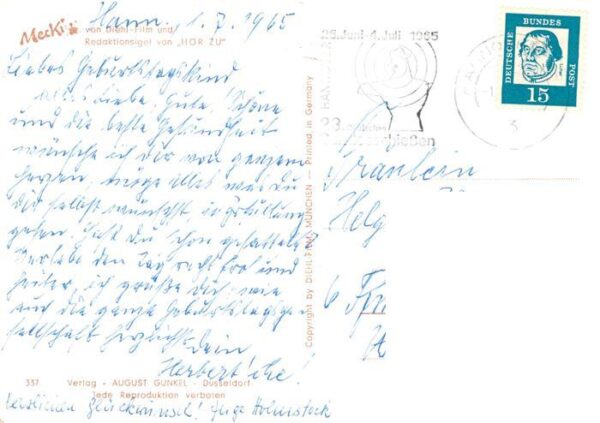 Hann. 1.7.1965
Mecki
von Diehl-Film und
Redaktionsigel von „HÖR ZU"
Liebes Geburtstagskind
alles Liebe, Gute, Schöne
und die beste Gesundheit
wünsche ich dir von ganzem
Herzen, möge alles was du
dir selbst wünschst, in Erfüllung
gehen. Du schon
Verlebe den Tag recht froh und
heiter, ich grüße dich wie
auch die ganze Geburtstagsge
sellschaft herzlichst
Dein
Herbert'che!
337 Verlag - AUGUST GUNKEL - Düsseldorf
Jede Reproduktion verboten
herzlichen Glückwunsch! Helga
Copyright by DIEHL-FILM MÜNCHEN — Printed in Germany
25. Juni - 4. Juli 1965
HANNOVER
DEUTSCHE BUNDES POST
15
3
Fräulein
Helg
6 Fr